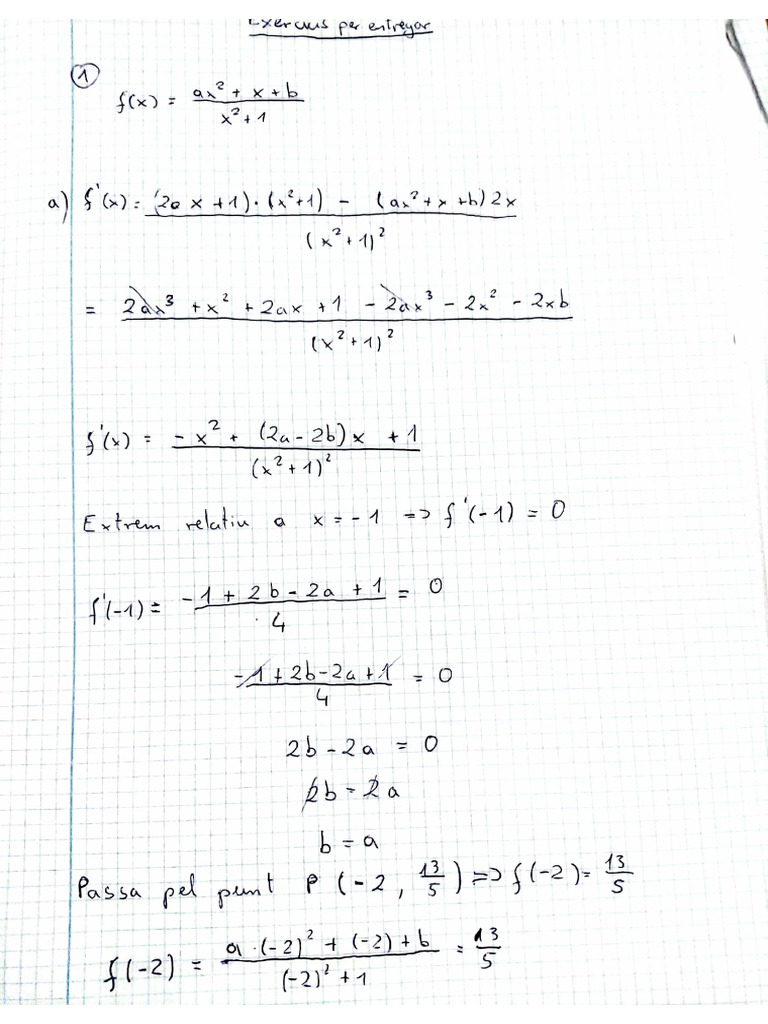 Exercicis per entregar
1
f(x) = (ax² + x + b) / (x² + 1)
a) f'(x) = ((2ax + 1)·(x² + 1) - (ax² + x + b)2x) / (x² + 1)²
= (2ax³ + x² + 2ax + 1 - 2ax³ - 2x² - 2xb) / (x² + 1)²
f'(x) = (-x² + (2a - 2b)x + 1) / (x² + 1)²
Extrem relatiu a x = -1 => f'(-1) = 0
f'(-1) = (-1 + 2b - 2a + 1) / 4 = 0
(-1 + 2b - 2a + 1) / 4 = 0
2b - 2a = 0
2b = 2a
b = a
Passa pel punt P (-2, 13/5) => f(-2) = 13/5
f(-2) = (a·(-2)² + (-2) + b) / ((-2)² + 1) = 13/5